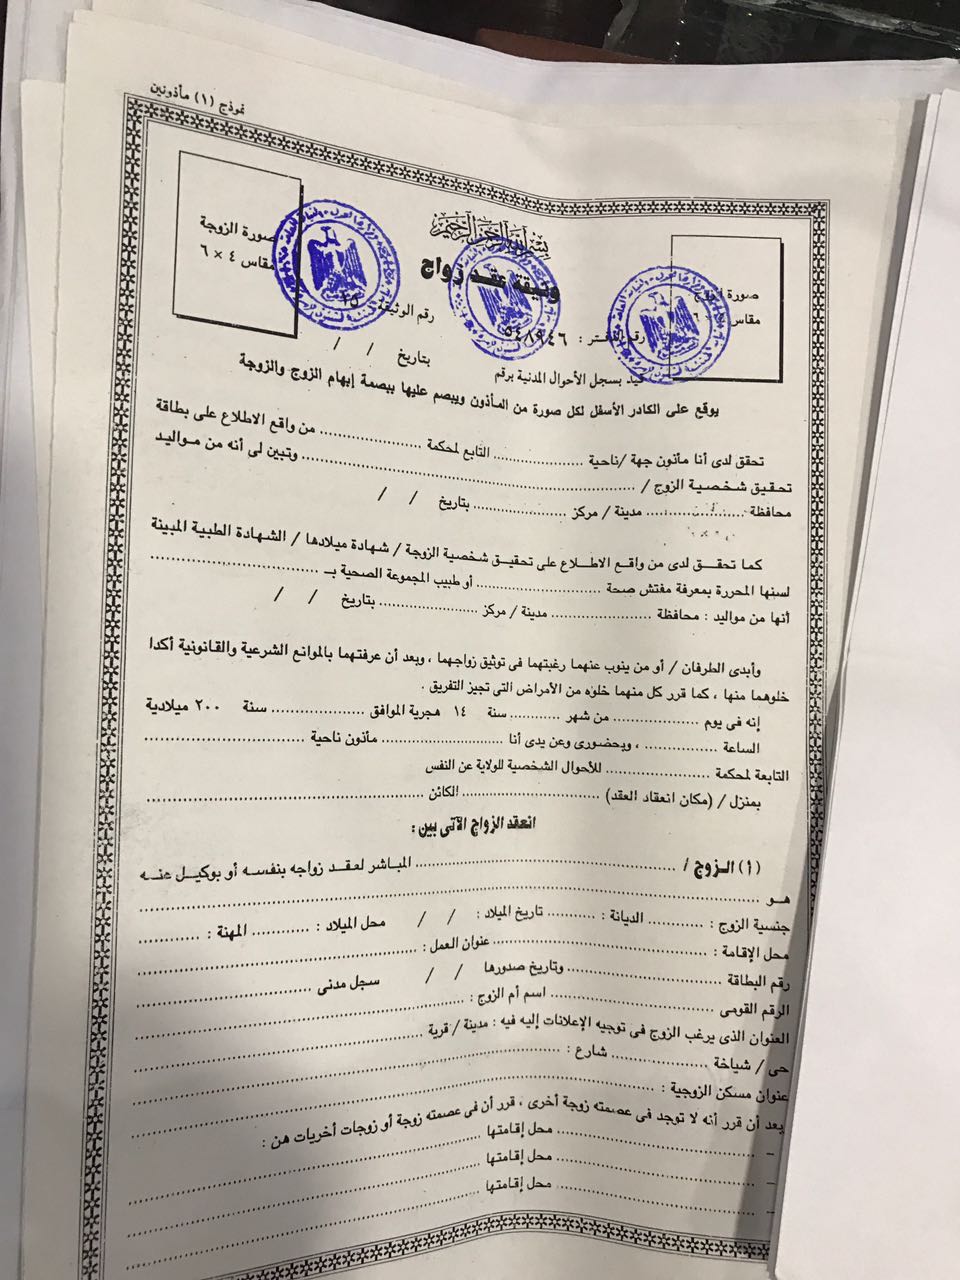 نموذج (١) مأذونين
صورة الزوجة
مقاس ٤ × ٦
بسم الله الرحمن الرحيم
وثيقة عقد زواج
صورة الزوج
مقاس ٦
رقم الدفتر : ٥٤٨٩٤٦ رقم الوثيقة ١٥
قيد بسجل الأحوال المدنية برقم بتاريخ / /
يوقع على الكادر الأسفل لكل صورة من المأذون ويبصم عليها ببصمة إبهام الزوج والزوجة
تحقق لدى أنا مأذون جهة /ناحية ..................... التابع لمحكمة ..................... من واقع الاطلاع على بطاقة
تحقيق شخصية الزوج / ........................................................ وتبين لى أنه من مواليد
محافظة ..................... مدينة / مركز ..................... بتاريخ / /
كما تحقق لدى من واقع الاطلاع على تحقيق شخصية الزوجة / شهادة ميلادها / الشهادة الطبية المبينة
لسنها المحررة بمعرفة مفتش صحة ..................... أو طبيب المجموعة الصحية بـ .....................
أنها من مواليد : محافظة ..................... مدينة / مركز ..................... بتاريخ / /
وأبدى الطرفان / أو من ينوب عنهما رغبتهما فى توثيق زواجهما ، وبعد أن عرفتهما بالموانع الشرعية والقانونية أكدا
خلوهما منها ، كما قرر كل منهما خلوه من الأمراض التى تجيز التفريق .
إنه فى يوم ..................... من شهر ............ سنة ١٤ هجرية الموافق ..................... سنة ٢٠٠ ميلادية
الساعة ..................... ، وبحضورى وعن يدى أنا ..................... مأذون ناحية .....................
التابعة لمحكمة ..................... للأحوال الشخصية للولاية عن النفس
بمنزل / (مكان انعقاد العقد) ..................... الكائن .....................
انعقد الزواج الآتى بين :
(أ) الزوج / ..................... المباشر لعقد زواجه بنفسه أو بوكيل عنه
هو .....................
جنسية الزوج : ............ الديانة : ............ تاريخ الميلاد : / / محل الميلاد : ............ المهنة : ............
محل الإقامة : ..................... عنوان العمل : .....................
رقم البطاقة ..................... وتاريخ صدورها / / سجل مدنى .....................
الرقم القومى ..................... اسم أم الزوج : .....................
العنوان الذى يرغب الزوج فى توجيه الإعلانات إليه فيه : مدينة / قرية .....................
حى / شياخة ..................... شارع : .....................
عنوان مسكن الزوجية : .....................
بعد أن قرر أنه لا توجد فى عصمته زوجة أخرى ، قرر أن فى عصمته زوجة أو زوجات أخريات هن :
– ..................... محل إقامتها .....................
– ..................... محل إقامتها .....................
– ..................... محل إقامتها .....................